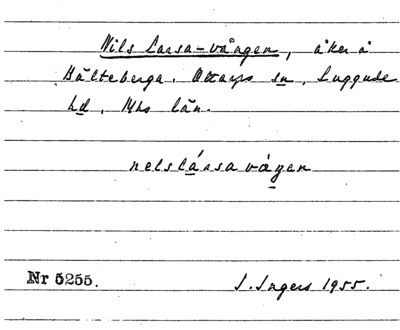 Nils Larsa-vången, åker å
Hälteberga. Ottarps sn, Luggude
hd, Mhs län.
nelslássavåŋen
Nr 5255.
I. Ingers 1955.